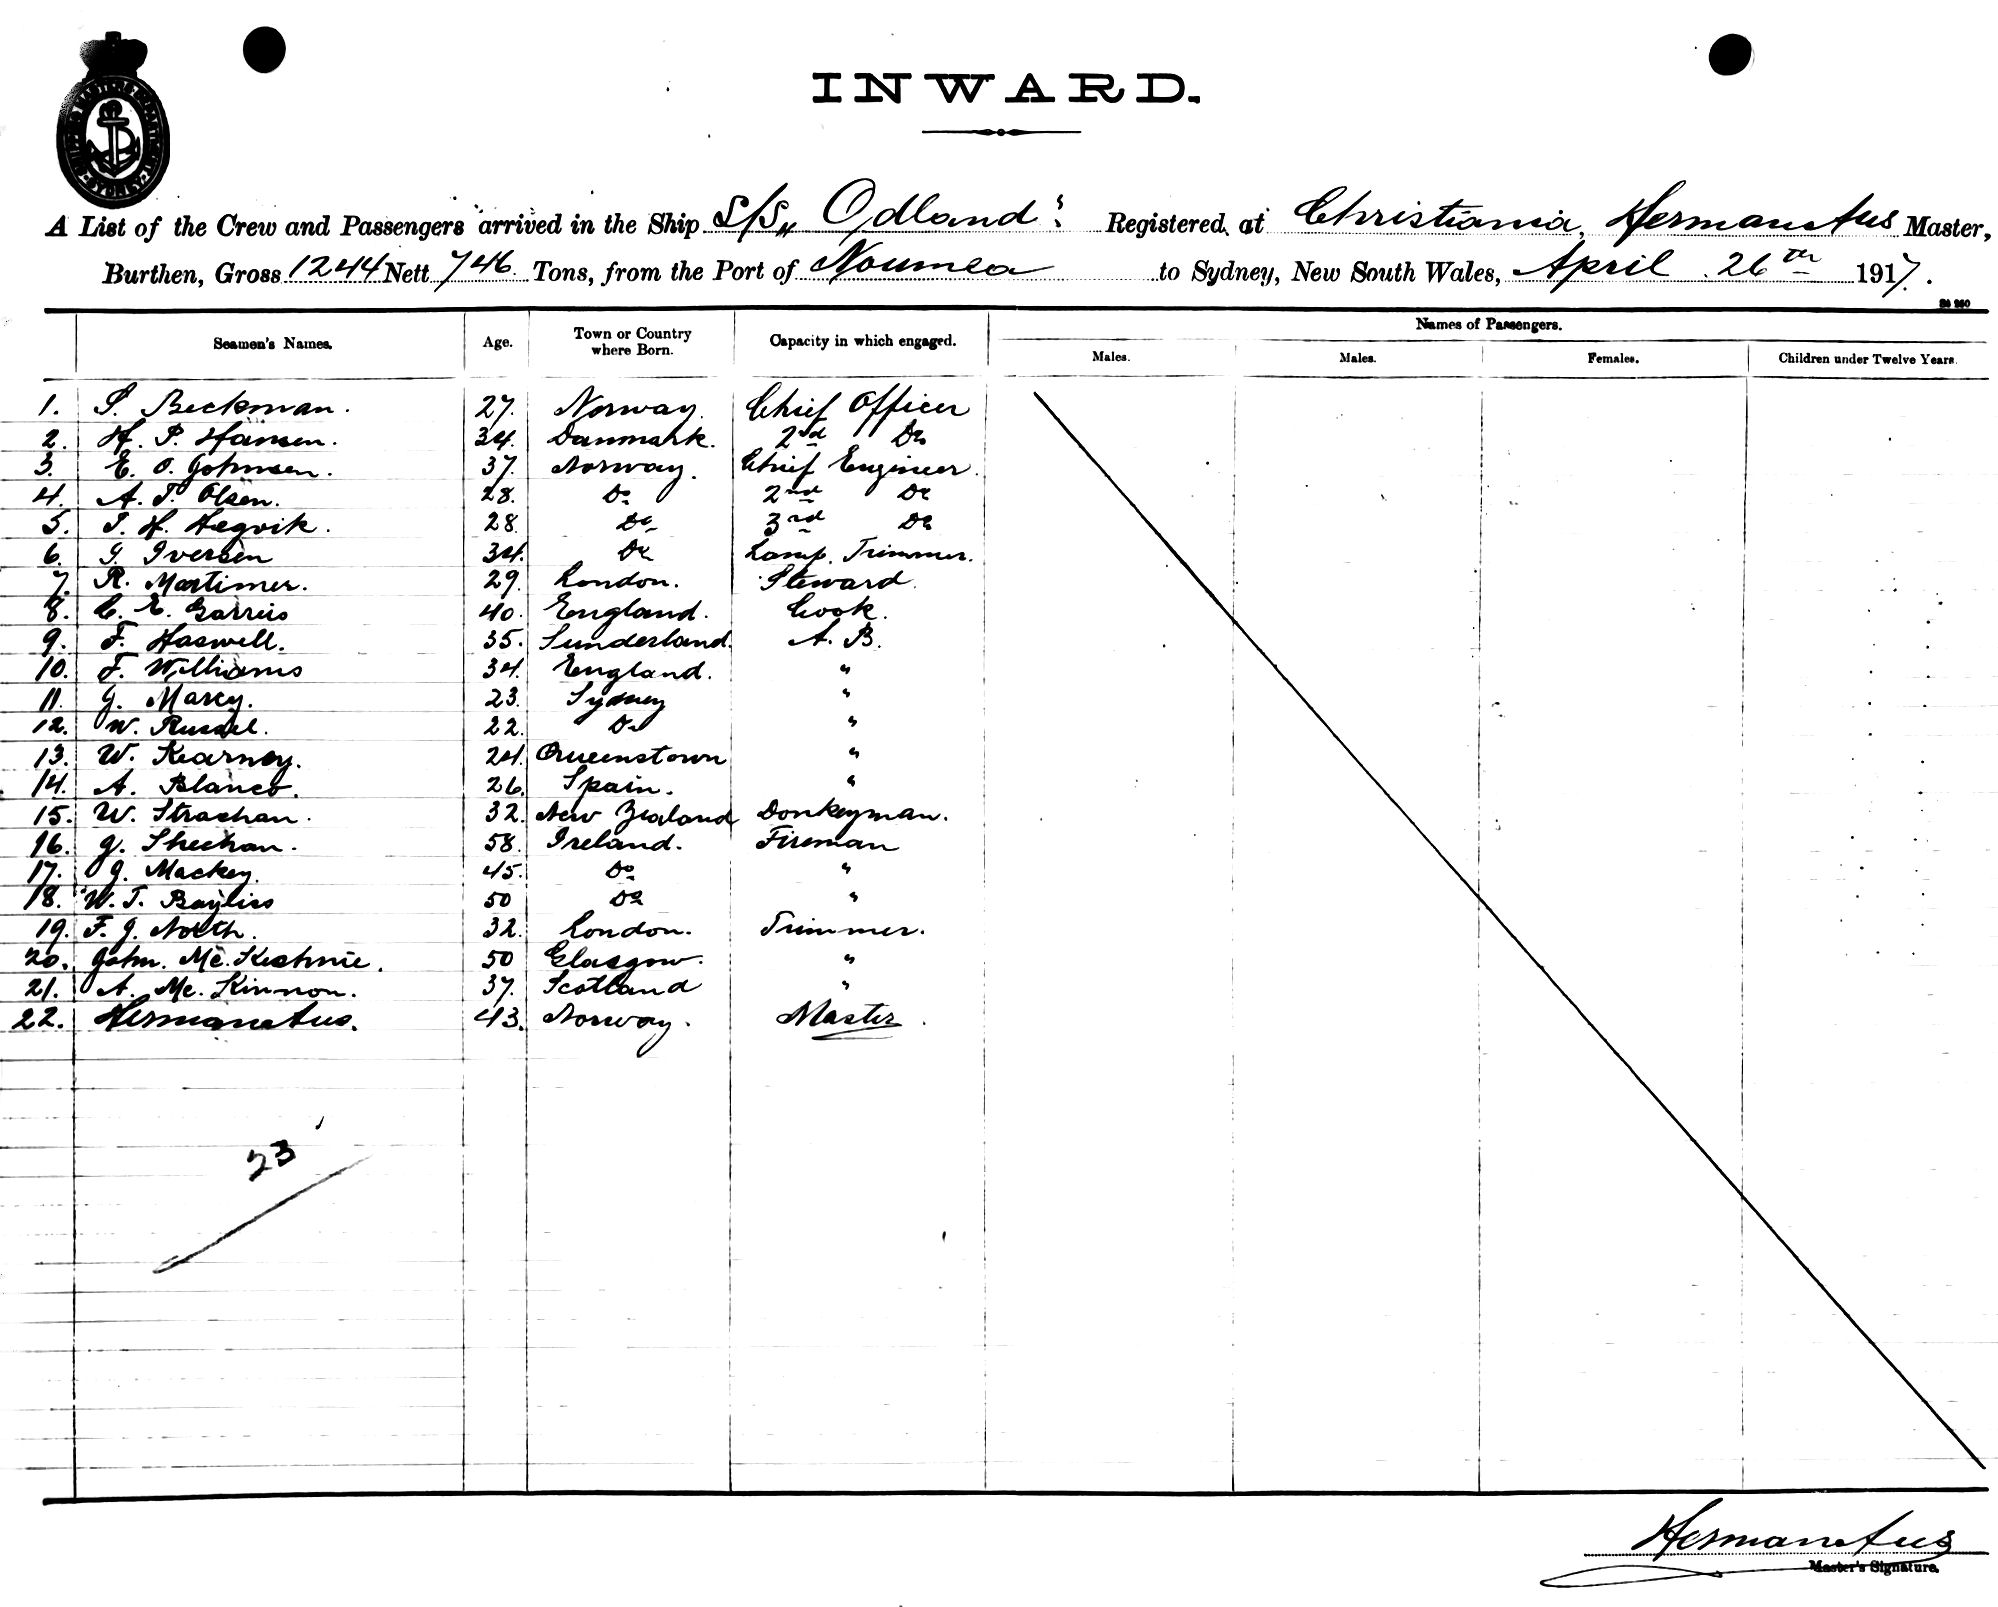 INWARD.
A List of the Crew and Passengers arrived in the Ship S/S „ Odland " Registered at Christiania, Hermanstus Master,
Burthen, Gross 1244 Nett 746 Tons, from the Port of Noumea to Sydney, New South Wales, April 26th 1917.
Seamen's Names. Age. Town or Country where Born. Capacity in which engaged. Names of Passengers.
Males. Males. Females. Children under Twelve Years.
1. S. Beckman. 27. Norway. Chief Officer
2. H. P. Hansen. 34. Danmark. 2nd Do
3. E. O. Johnsen. 37. Norway. Chief Engineer.
4. A. T. Olsen. 28. Do 2nd Do
5. T. H. Hegvik. 28 Do 3rd Do
6. G. Iversen 34. Do Lamp. Trimmer.
7. R. Mortimer. 29. London. Steward.
8. C. E. Garriis 40. England. Cook.
9. F. Haswell. 35. Sunderland. A. B.
10. F. Williams 34. England. "
11. J. Marcy. 23. Sydney "
12. W. Russel. 22. Do "
13. W. Kearney. 24. Queenstown "
14. A. Blanco. 26. Spain. "
15. W. Strachan. 32. New Zealand Donkeyman.
16. J. Sheehan. 58. Ireland. Fireman
17. J. Mackey. 45. Do "
18. W. T. Bayliss 50 Do "
19. F. J. North. 32. London. Trimmer.
20. John. Mc. Kechnie. 50 Glasgow. "
21. A. Mc. Kinnon. 37. Scotland "
22. Hermanstus. 43. Norway. Master.
23
Hermanstus
Master's Signature.